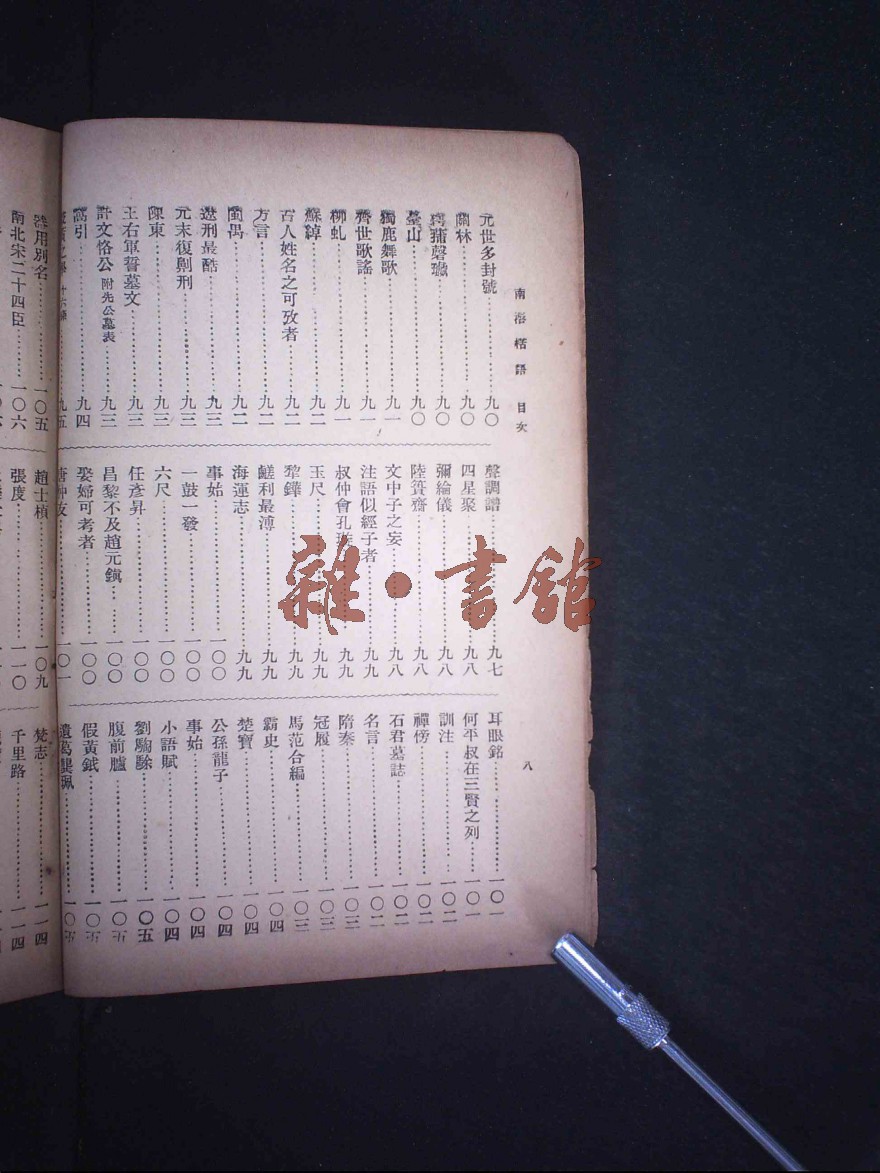 南海楛語 目次
八
元世多封號……九〇
關林……九〇
臺山……九〇
獨鹿舞歌……九一
齊世歌謠……九一
柳虬……九一
蘇綽……九二
古人姓名之可攷者……九二
方言……九二
閩禺……九二
遼刑最酷……九三
元末復劓刑……九三
陳東……九三
王右軍誓墓文……九三
許文恪公 附先公墓表……九三
萬引……九四
九五
聲調譜……九七
四星聚……九八
彌綸儀……九八
陸簣齋……九八
文中子之妄……九八
注語似經子者……九九
叔仲會孔
玉尺……九九
犂鏵……九九
鹺利最溥……九九
海運志……九九
事始……一〇〇
一鼓一發……一〇〇
六尺……一〇〇
任彥昇……一〇〇
昌黎不及趙元鎮……一〇〇
娶婦可考者……一〇〇
唐仲友……一〇一
耳眼銘……一〇一
何平叔在三賢之列……一〇一
訓注……一〇二
禪傍……一〇二
石君墓誌……一〇二
名言……一〇二
隋秦……一〇三
冠履……一〇三
馬范合編……一〇三
霸史……一〇四
楚寶……一〇四
公孫龍子……一〇四
事始……一〇四
小語賦……一〇四
劉騊駼……一〇五
腹前臚……一〇五
假黃鉞……一〇五
遺葛龔珮……一〇五
器用別名……一〇五
南北宋二十四臣……一〇六
趙士楨……一〇九
張度……一一〇
梵志……一一四
千里路……一一四
雜·書館